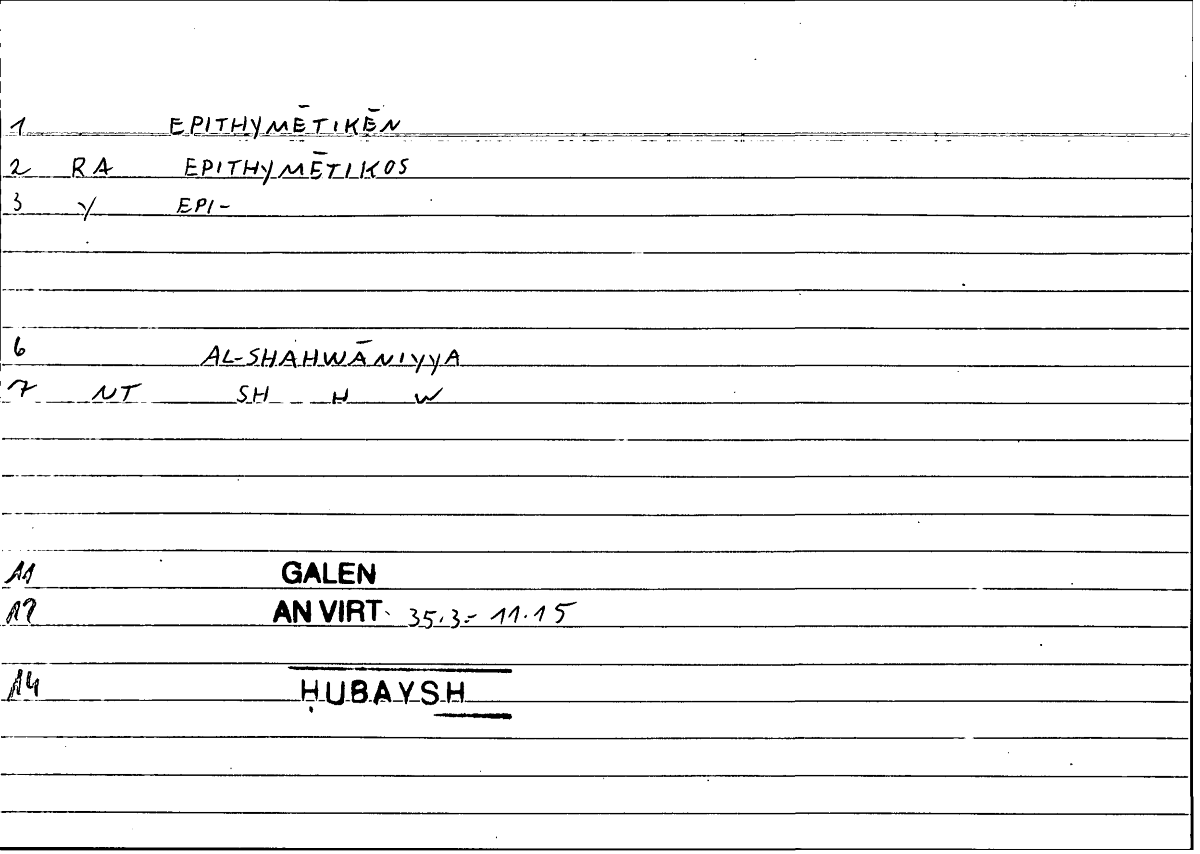 1 EPITHYMĒTIKĒN
2 RA EPITHYMĒTIKOS
3 Y EPI-
6 AL-SHAHWĀNIYYA
7 NT SH H W
11 GALEN
12 AN VIRT 35.3 - 11.15
14 ḤUBAYSH